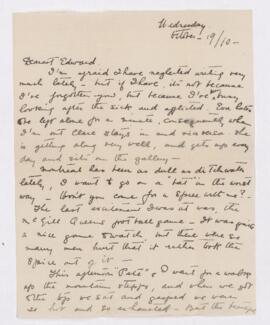 Wednesday
October 19/10 -
Dearest Edward.
I'm afraid I have neglected writing very
much lately - but if I have, its not because
I've forgotten you, but because I've been busy
looking after the sick and afflicted. Eva
be left alone for a minute, consequently when
I'm out Clare stays in and vice versa. She
is getting along very well, and gets up every
day and sits on the gallery -
Montreal has been as dull as ditchwater
lately, I want to go on a "bat" in the worst
way - Won't you come for a spree with me?
The last excitement I was at was the
McGill Queens football game - It was quite
a nice game to watch but there were so
many men hurt that it rather took the
spice out of it -
This afternoon "Pate" & I went for a walk
up the mountain steps, and when we got
to the top we sat and gasped we were
so hot and so exhausted - But the